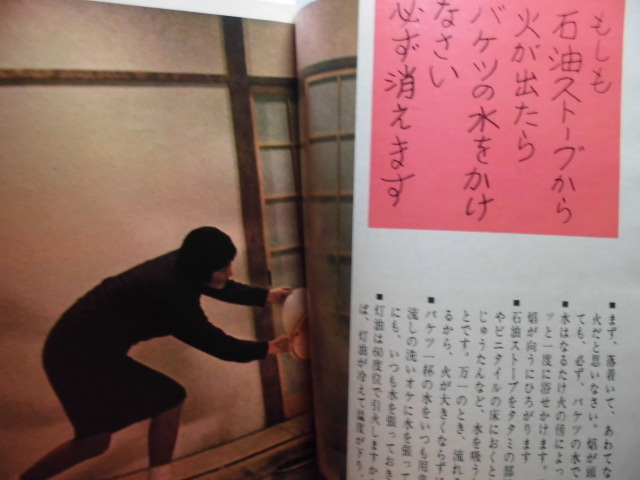 もしも
石油ストーブから
火が出たら
バケツの水をかけ
なさい
必ず消えます
■まず、落着いて、あわてな
火だと思いなさい。焰が
ても、必ず、バケツの水で
■水はなるたけ火の傍によっ
ッと一度に浴せかけます。
焰が向うにひろがります
■石油ストーブをタタミの部
やビニタイルの床におくと
じゅうたんなど、水を吸う
とです。万一のとき、流れ
るから、火が大きくならず
■バケツ一杯の水をいつも用意
流しの洗いオケに水を張って
にも、いつも水を張っておき
■灯油は60度位で引火しますか
ば、灯油が冷えて温度が下り、